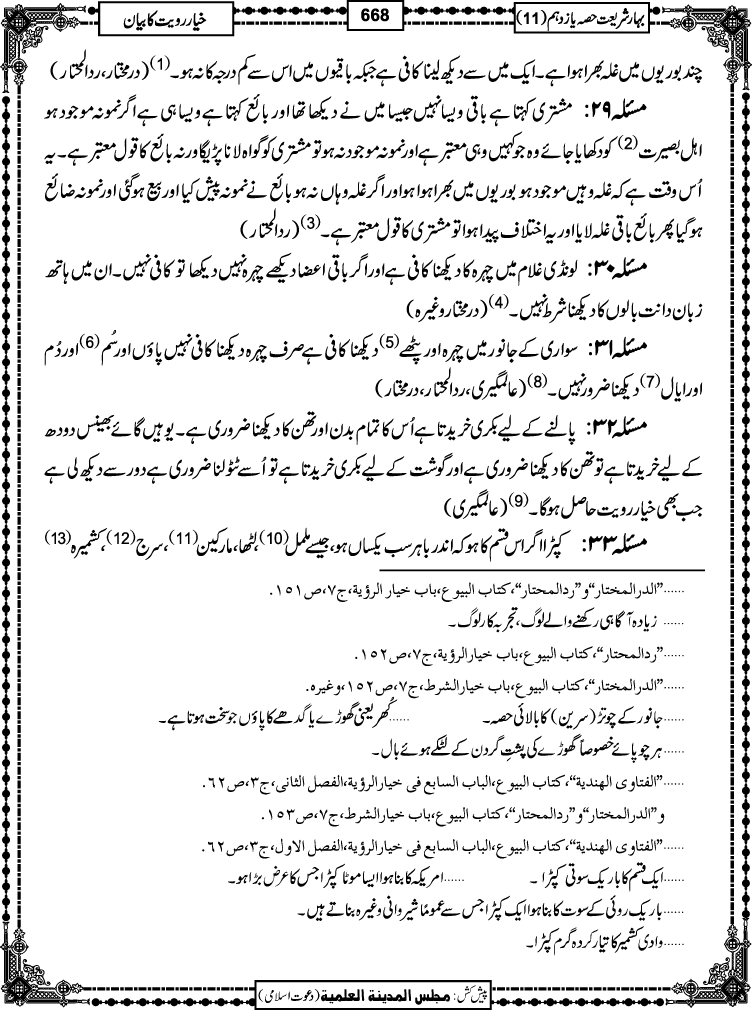 بہارِ شریعت حصہ یازدہم (11)
668
خیار رویت کا بیان
چند بوریوں میں غلہ بھرا ہوا ہے۔ ایک میں سے دیکھ لینا کافی ہے جبکہ باقیوں میں اس سے کم درجہ کا نہ ہو۔(1) (درمختار، ردالمحتار)
مسئلہ ۲۹: مشتری کہتا ہے باقی ویسا نہیں جیسا میں نے دیکھا تھا اور بائع کہتا ہے ویسا ہی ہے اگر نمونہ موجود ہو
اہل بصیرت(2) کو دکھایا جائے وہ جو کہیں وہی معتبر ہے اور نمونہ موجود نہ ہو تو مشتری کو گواہ لانا پڑیگا ورنہ بائع کا قول معتبر ہے۔ یہ
اُس وقت ہے کہ غلہ وہیں موجود ہو بوریوں میں بھرا ہوا ہو اور اگر غلہ وہاں نہ ہو بائع نے نمونہ پیش کیا اور بیع ہوگئی اور نمونہ ضائع
ہوگیا پھر بائع باقی غلہ لایا اور یہ اختلاف پیدا ہوا تو مشتری کا قول معتبر ہے۔(3) (ردالمحتار)
مسئلہ ۳۰: لونڈی غلام میں چہرہ کا دیکھنا کافی ہے اور اگر باقی اعضا دیکھے چہرہ نہیں دیکھا تو کافی نہیں۔ ان میں ہاتھ
زبان دانت بالوں کا دیکھنا شرط نہیں۔(4) (درمختار وغیرہ)
مسئلہ ۳۱: سواری کے جانور میں چہرہ اور پٹھے(5) دیکھنا کافی ہے صرف چہرہ دیکھنا کافی نہیں پاؤں اور سُم(6) اور دُم
اور ایال(7) دیکھنا ضرور نہیں۔(8) (عالمگیری، ردالمحتار، درمختار)
مسئلہ ۳۲: پالنے کے لیے بکری خریدتا ہے اُس کا تمام بدن اور تھن کا دیکھنا ضروری ہے۔ یوہیں گائے بھینس دودھ
کے لیے خریدتا ہے تو تھن کا دیکھنا ضروری ہے اور گوشت کے لیے بکری خریدتا ہے تو اُسے ٹٹولنا ضروری ہے دور سے دیکھ لی ہے
جب بھی خیار رویت حاصل ہوگا۔(9) (عالمگیری)
مسئلہ ۳۳: کپڑا اگر اس قسم کا ہو کہ اندر باہر سب یکساں ہو، جیسے ململ(10)، لٹھا، مارکین(11)، سرج(12)، کشمیرہ(13)
......”الدرالمختار“و”ردالمحتار“،کتاب البیوع،باب خیار الرؤیة،ج۷،ص۱۵۱.
...... زیادہ آگاہی رکھنے والے لوگ، تجربہ کار لوگ۔
......”ردالمحتار“،کتاب البیوع،باب خیارالرؤیة،ج۷،ص۱۵۲.
......”الدرالمختار“،کتاب البیوع،باب خیارالشرط،ج۷،ص۱۵۲،وغیرہ.
......جانور کے چوتڑ (سرین) کا بالائی حصہ۔ ......کُھر یعنی گھوڑے یا گدھے کا پاؤں جو سخت ہوتا ہے۔
......ہر چوپائے خصوصاً گھوڑے کی پشتِ گردن کے لٹکے ہوئے بال۔
......”الفتاوی الھندیة“،کتاب البیوع،الباب السابع فی خیارالرؤیة،الفصل الثانی،ج۳،ص۶۲.
و”الدرالمختار“و”ردالمحتار“،کتاب البیوع،باب خیارالشرط،ج۷،ص۱۵۳.
......”الفتاوی الھندیة“،کتاب البیوع،الباب السابع فی خیارالرؤیة،الفصل الاول،ج۳،ص۶۲.
......ایک قسم کا باریک سوتی کپڑا۔ ......امریکہ کا بنا ہوا ایسا موٹا کپڑا جس کا عرض بڑا ہو۔
......باریک روئی کے سوت کا بنا ہوا ایک کپڑا جس سے عموماً شیروانی وغیرہ بناتے ہیں۔
......وادی کشمیر کا تیار کردہ گرم کپڑا۔
پیش کش: مجلس المدینة العلمیة (دعوت اسلامی)